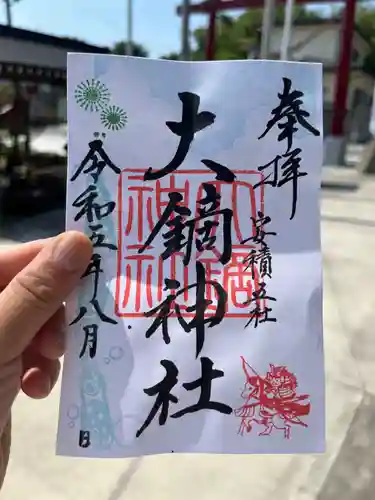 奉拝
安積五社
大鏑神社
令和五年八月
日